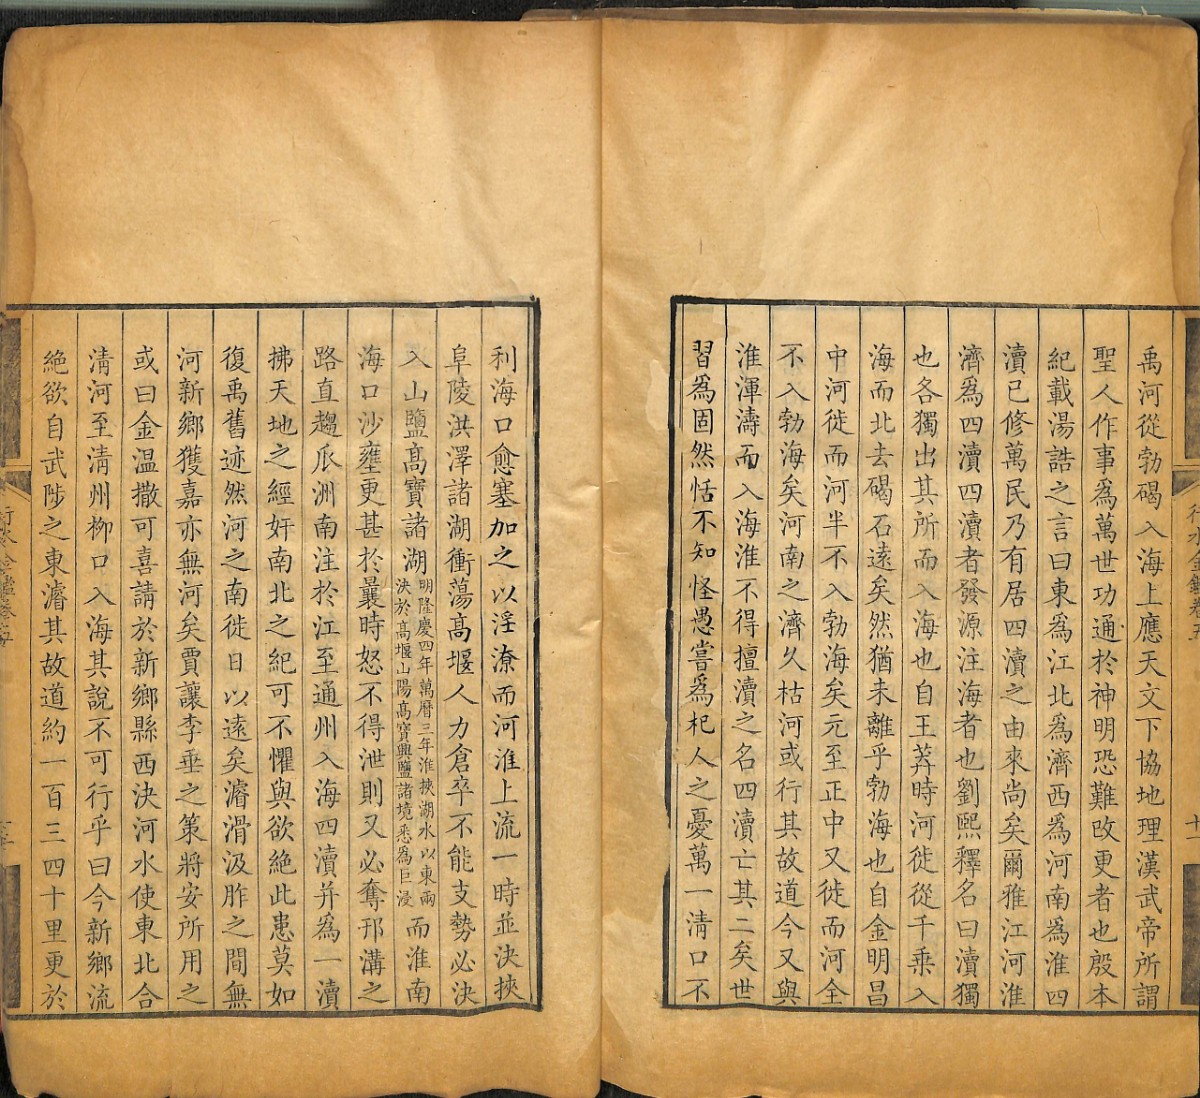 禹河從勃碣入海上應天文下協地理漢武帝所謂
聖人作事爲萬世功通於神明恐難攺更者也殷本
紀載湯誥之言曰東爲江北爲濟西爲河南爲淮四
瀆已修萬民乃有居四瀆之由來尚矣爾雅江河淮
濟爲四瀆四瀆者發源注海者也劉熙釋名曰瀆獨
也各獨出其所而入海也自王莽時河徙從千乗入
海而北去碣石遠矣然猶未離乎勃海也自金明昌
中河徙而河半不入勃海矣元至正中又徙而河全
不入勃海矣河南之濟久枯河或行其故道今又與
淮渾濤而入海淮不得擅瀆之名四瀆亡其二矣世
習爲固然恬不知怪愚嘗爲杞人之憂萬一淸口不
利海口愈塞加之以淫潦而河淮上流一時並決挾
阜陵洪澤諸湖衝蕩高堰人力倉卒不能支勢必決
入山鹽高寶諸湖明隆慶四年萬曆三年淮挾湖水以東兩決於高堰山陽高寶興鹽諸境悉爲巨浸而淮南
海口沙壅更甚於曩時怒不得泄則又必奪邗溝之
路直趨瓜洲南注於江至通州入海四瀆并爲一瀆
拂天地之經奸南北之紀可不懼與欲絶此患莫如
復禹舊迹然河之南徙日以遠矣濬滑汲胙之間無
河新鄉獲嘉亦無河矣賈讓李垂之策將安所用之
或曰金温撒可喜請於新鄉縣西決河水使東北合
淸河至淸州柳口入海其說不可行乎曰今新鄉流
絶欲自武陟之東濬其故道約一百三四十里更於